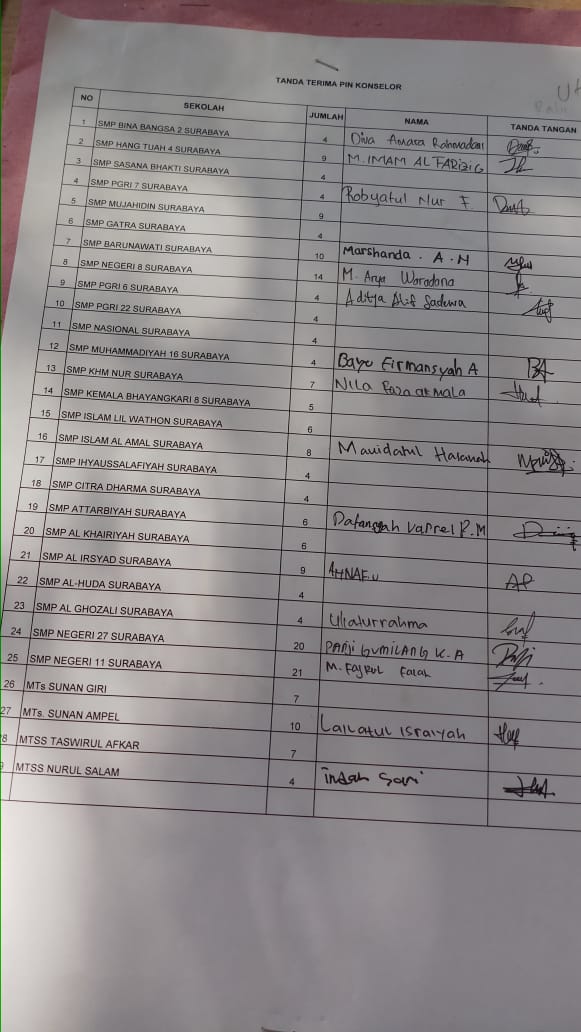 TANDA TERIMA PIN KONSELOR
NO SEKOLAH JUMLAH NAMA TANDA TANGAN
1 SMP BINA BANGSA 2 SURABAYA 4 Diva Amara
2 SMP HANG TUAH 4 SURABAYA 9 M. IMAM AL FARIZI G
3 SMP SASANA BHAKTI SURABAYA 4
4 SMP PGRI 7 SURABAYA 4 Robyatul Nur F.
5 SMP MUJAHIDIN SURABAYA 9
6 SMP GATRA SURABAYA 4
7 SMP BARUNAWATI SURABAYA 10 Marshanda . A . N
8 SMP NEGERI 8 SURABAYA 14 M. Arya Waradana
9 SMP PGRI 6 SURABAYA 4 Aditya Alif Sadewa
10 SMP PGRI 22 SURABAYA 4
11 SMP NASIONAL SURABAYA 4
12 SMP MUHAMMADIYAH 16 SURABAYA 4 Bayu Firmansyah A BA
13 SMP KHM NUR SURABAYA 7 Nila Faza akmala
14 SMP KEMALA BHAYANGKARI 8 SURABAYA 5
15 SMP ISLAM LIL WATHON SURABAYA 6
16 SMP ISLAM AL AMAL SURABAYA 8 Mauidatul Hasanah
17 SMP IHYAUSSALAFIYAH SURABAYA 4
18 SMP CITRA DHARMA SURABAYA 4
19 SMP ATTARBIYAH SURABAYA 6 Dafansyah Varrel P.M
20 SMP AL KHAIRIYAH SURABAYA 6
21 SMP AL IRSYAD SURABAYA 9 AHNAF.U AP
22 SMP AL-HUDA SURABAYA 4
23 SMP AL GHOZALI SURABAYA 4 Uliaturrahma
24 SMP NEGERI 27 SURABAYA 20 PANJI GUMILANG K.A
25 SMP NEGERI 11 SURABAYA 21 M. Fajrul Falah
26 MTs SUNAN GIRI 7
27 MTs. SUNAN AMPEL 10 Lailatul Israiyah
8 MTSS TASWIRUL AFKAR 7
9 MTSS NURUL SALAM 4 indah Sari